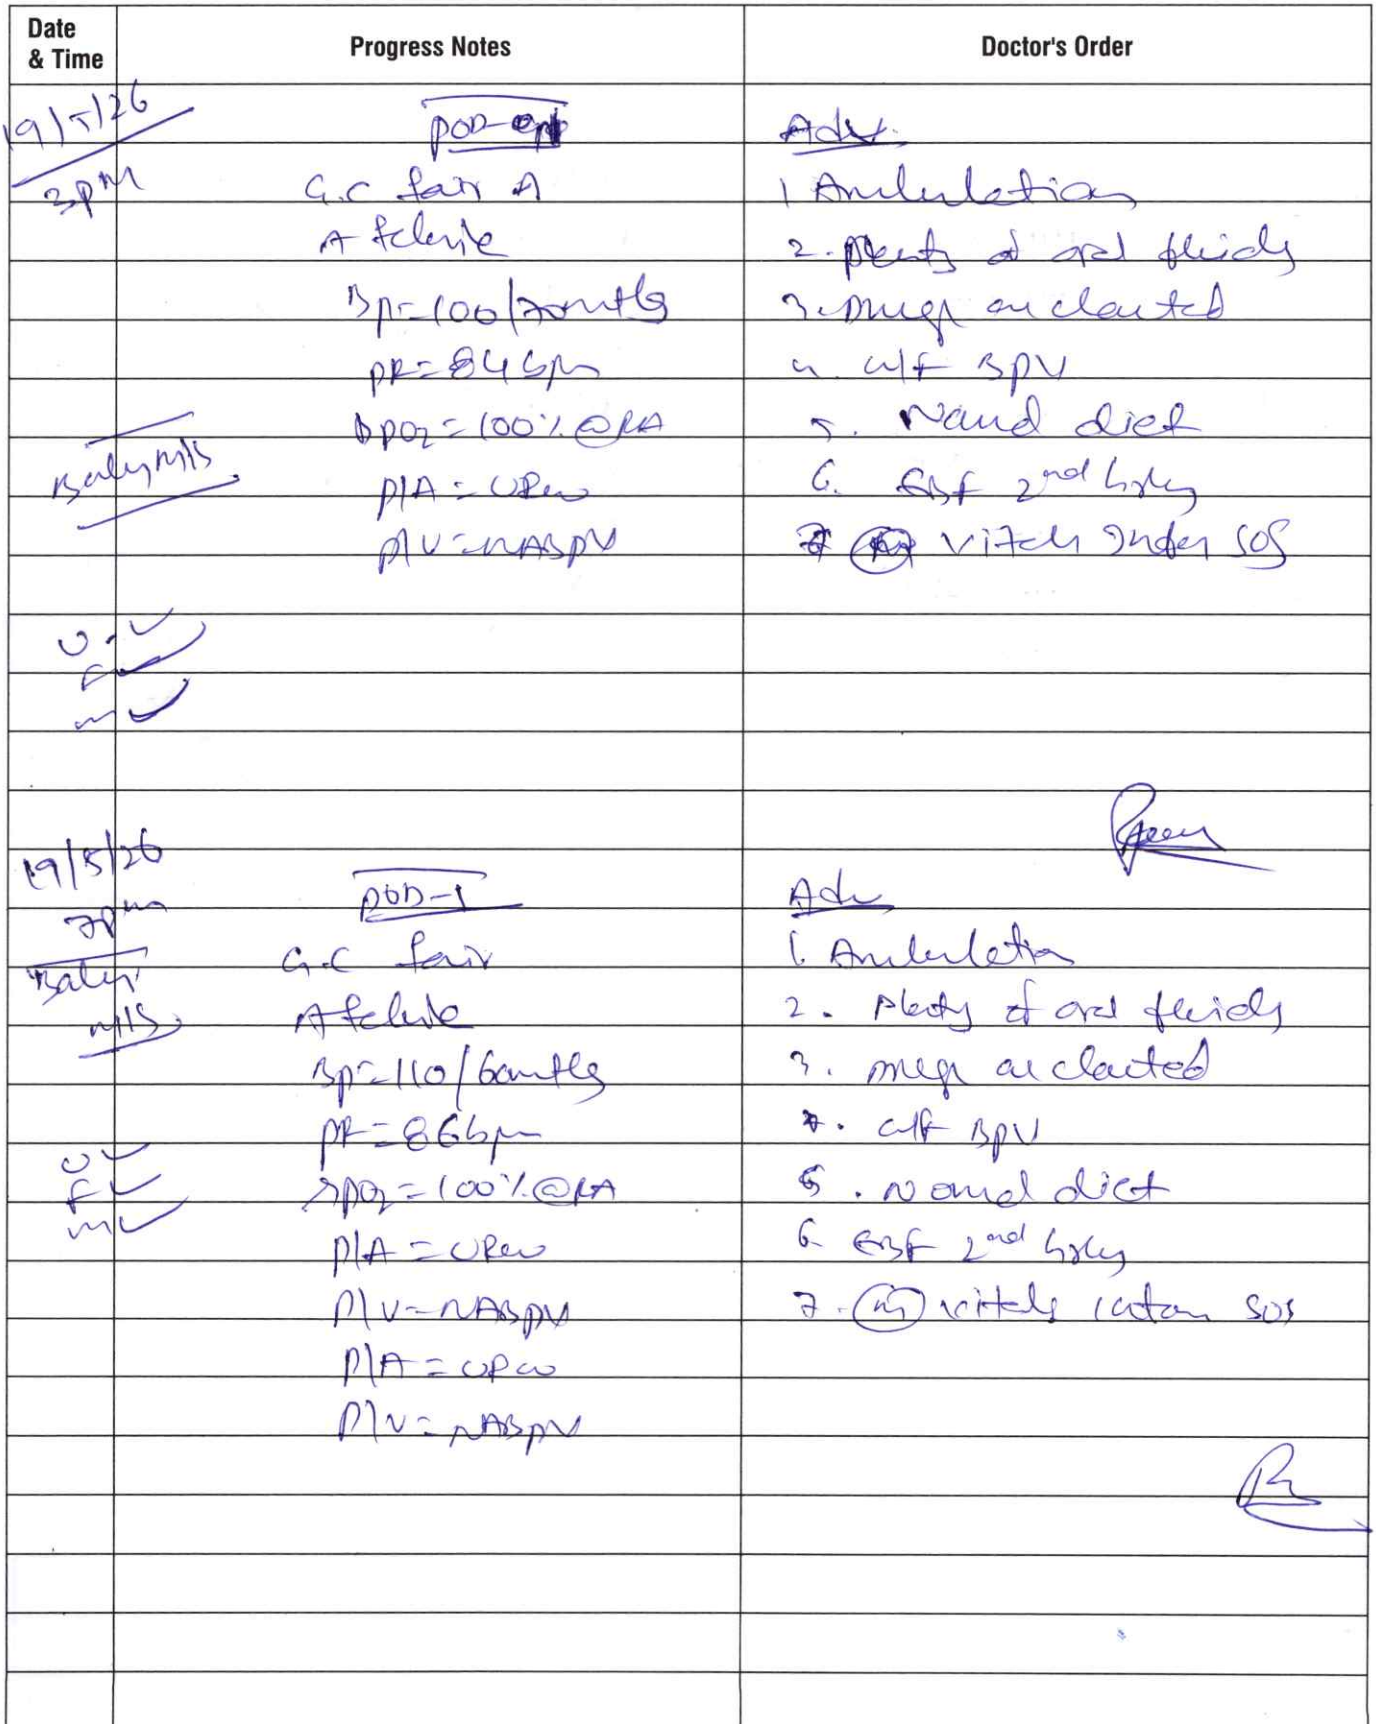 Date & Time
Progress Notes
Doctor's Order
19/5/26
3pm
POD-
G.C fair
Afebrile
BP=100/70mmHg
PR=84bpm
SpO2=100% @RA
P/A=
P/V=NABPV
Baby M/S
U ✓
F ✓
m ✓
Adv.
1 Ambulation
2. Plenty of oral fluids
3. Drugs as charted
4. w/f BPV
5. Normal diet
6. EBF 2nd hrly
7 (m) vitals inform SOS
19/5/26
7pm
Baby M/S
U ✓
F ✓
m ✓
POD-1
G.C fair
Afebrile
BP=110/60mmHg
PR=86bpm
SpO2=100% @RA
P/A=
P/V=NABPV
P/A=
P/V=NABPV
Adv
1. Ambulation
2. Plenty of oral fluids
3. Drugs as charted
4. w/f BPV
5. Normal diet
6. EBF 2nd hrly
7. (m) vitals inform SOS